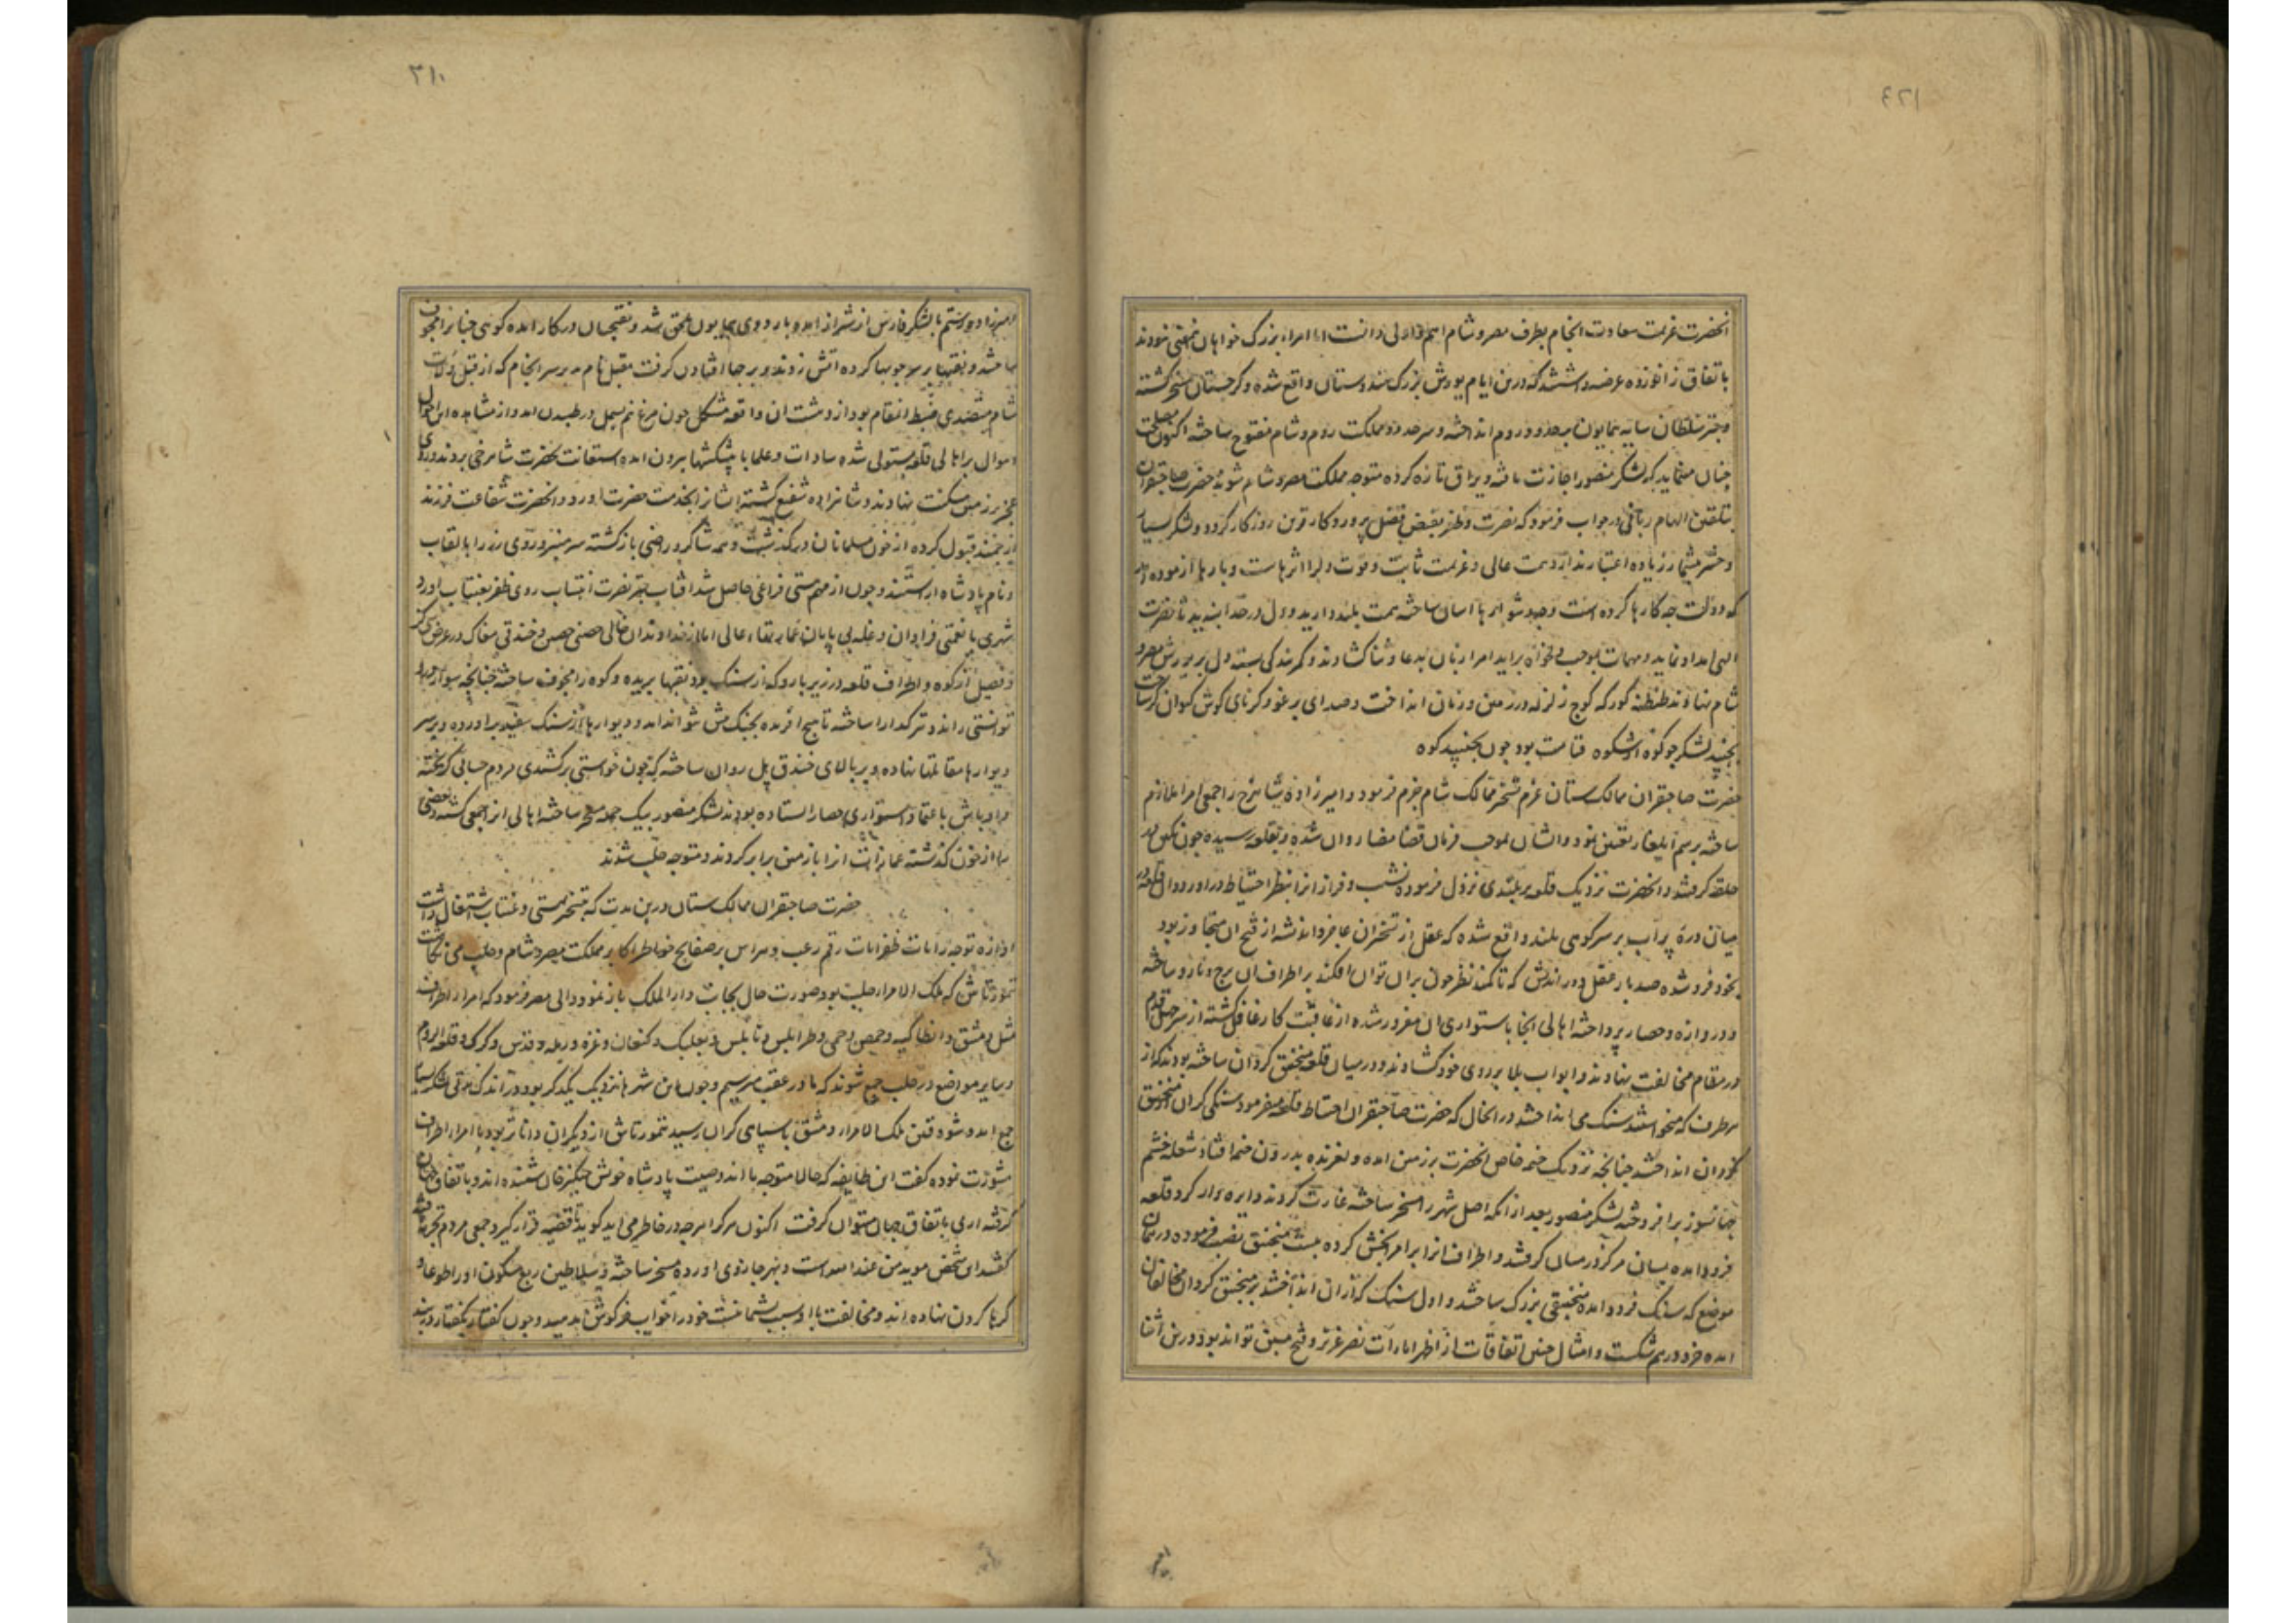 انحضرت عزیمت سعادت انجام بطرف مصر و شام اهم و اولی دانست اما امراء بزرگ خواهان نمودند
باتفاق زانو زده عرضه داشتند که درین ایام یورش بزرگ هندوستان واقع شده و گرجستان مسخر گشته
و چتر سلطان سایه همایون بر حدود روم انداخته و سرحدود مملکت روم و شام مفتوح ساخته اکنون مصلحت
چنان مینماید که لشکر منصور اجازت یافته و یراق تازه کرده متوجه مملکت مصر و شام شوند حضرت صاحبقران
بتلقین الهام ربانی در جواب فرمود که نصرت و ظفر بفیض فضل پروردکار قرین روزکار کردد و لشکر بسیار
و حشر بیشمار زیاده اعتبار ندارد همت عالی و عزیمت ثابت و قوت را اثرهاست و بارها ازموده اید
که دولت چه کارها کرده است و چه دشواریها اسان ساخته همت بلند دارید و دل در خدا بندید تا نصرت
الهی امداد نماید و مهمات بموجب دلخواه براید امرا زبان بدعا و ثنا کشادند و کمر بندکی بسته دل بر یورش مصر و
شام نهادند طنطنه کورکه کوچ زلزله در زمین و زمان انداخت و صدای برغو و کرنای کوش کیوان کر ساخت
بجنبید لشکر چو کوه از شکوه قیامت بود چون بجنبید کوه
حضرت صاحبقران ممالک ستان عزم تسخیر ممالک شام جزم فرمود و امیرزاده شاهرخ را جمعی امرا ملازم
ساخته برسم ایلغار تعیین نمود و ایشان بموجب فرمان قضا مضا روان شده و بقلعه رسیده چون نکین در
حلقه کرفتند و انحضرت نزدیک قلعه بر بلندی نزول فرموده نشیب و فراز انرا بنظر احتیاط دراورد و ان قلعه در
میان دره پر آب بر سر کوهی بلند واقع شده که عقل از تسخیر ان عاجز و اندیشه از فتح ان متجاوز بود
بخود فرو شده صد بار عقل دور اندیش که تا کمند نظر چون بران توان افکند بر اطراف ان برج و بارو ساخته
و دروازه و حصار پرداخته اهالی انجا باستواری ان مغرور شده از عاقبت کار غافل کشته از سر جهل قدم
در مقام مخالفت نهادند و ابواب بلا بر روی خود کشادند و در میان قلعه منجنیق کردان ساخته بودند که از
هر طرف که میخواستند سنک می انداختند در انحال که حضرت صاحبقران احتیاط قلعه میفرمود سنکی کران از منجنیق
کردان انداختند چنانچه نزدیک خیمه خاص انحضرت بر زمین امده و لغزنده بدرون خیمه افتاد شعله خشم
جهانسوز برافروخته لشکر منصور بعد از انکه اصل شهر را مسخر ساخته غارت کردند دایره وار کرد قلعه
فرود امده بسان مرکز در میان کرفتند و اطراف انرا بر امرا بخش کرده بیست منجنیق نصب فرموده در همان
موضع که سنک فرود امده منجنیقی بزرک ساختند و اول سنک که از ان انداختند بر منجنیق کردان مخالفان
امده خرد درهم شکست و امثال چنین اتفاقات از اظهر امارات نصر عزیز و فتح مبین تواند بود و درین اثنا
امیرزاده رستم با لشکر فارس از شیراز امده باردوی همایون ملحق شد و نقبچیان در کار امده کوهی چنان را مجوف
ساختند و نقبها بر سر چوبها کرده اتش زدند و برجها افتادن کرفت مقبل نام بدسرانجام که از قبل ولات
شام متصدی ضبط انمقام بود از دهشت ان واقعه مشکل چون مرغ نیم بسمل در طپیدن امد و از مشاهده این احوال
اهوال بر اهالی قلعه مستولی شده سادات و علما با پیشکشها بیرون امده استغاثت بحضرت شاهرخی بردند و روی
عجز بر زمین مسکنت نهادند و شاهزاده شفیع کشته ایشانرا بخدمت حضرت اورد و انحضرت شفاعت فرزند
ارجمند قبول کرده از خون مسلمانان درکذشت و همه شاکر و راضی بازکشته سر منبر و روی زر را بالقاب
و نام پادشاه اراستند و چون از مهم بهسنی فراغی حاصل شد افتاب چتر نصرت انتساب روی ظفر بعنتاب اورد
شهری با نعمتی فراوان و غله بی پایان عمارتها عالی اما از خداوندان خالی حصنی حصین و خندقی مغاک در عرض سی کز
و فصیل از کوه و اطراف قلعه در زیر بارو که از سنک بود نقبها بریده و کوه را مجوف ساخته چنانچه سوار دران
توانستی راند و تیرکذارا ساخته تا هیچ افریده بجنک پیش نتواند امد و دیوارها از سنک سفید براورده و بر سر
دیوارها مقاتلها نهاده و بر بالای خندق پل روان ساخته که چون خواستی برکشندی مردم حسابی کریخته
و اوباش باعتماد استواری حصار ایستاده بودند لشکر منصور بیک حمله مسخر ساخته اهالی انرا جمعی کشته و بعضی
را از خون کذشته عمارات انرا با زمین برابر کردند و متوجه حلب شدند
حضرت صاحبقران ممالک ستان درین مدت که بتسخیر بهسنی و عنتاب اشتغال داشت
اوازه توجه رایات ظفرایات رقم رعب و هراس بر صفایح خواطر اکابر مملکت مصر و شام و حلب می نکاشت
تمورتاش که ملک الامراء حلب بود صورت حال بجانب دارالملک باز نمود والی مصر فرمود که امراء اطراف
مثل دمشق و انطاکیه و حمص و حمی و طرابلس و نابلس و بعلبک و کنعان و غزه و رمله و قدس و کرک و قلعه الروم
و سایر مواضع در حلب جمع شوند که ما در عقب میرسیم و چون این شهرها نزدیک یکدکر بود در اندک فرصتی لشکر بسیار
جمع امد و شودون ملک الامراء دمشق با سپاهی کران برسید تمورتاش از دیکران داناتر بود با امراء اطراف
مشورت نموده کفت این طایفه که حالا متوجه ما اند وصیت پادشاه خویش چنکیز خان شنیده اند و باتفاق جهان
کرفته اری باتفاق جهان میتوان کرفت اکنون هر کرا هر چه در خاطر می اید کوید تا قضیه قرار کیرد جمعی مردم تجربه یافته
کفتند این شخص موید من عندالله است و بهر جا روی اورده مسخر ساخته و سلاطین ربع مسکون او را طوعا و
کرها کردن نهاده اند و مخالفت با او سبب پشیمانیست خود را خواب خرکوش مدهید و چون کفتار بکفتار در بند